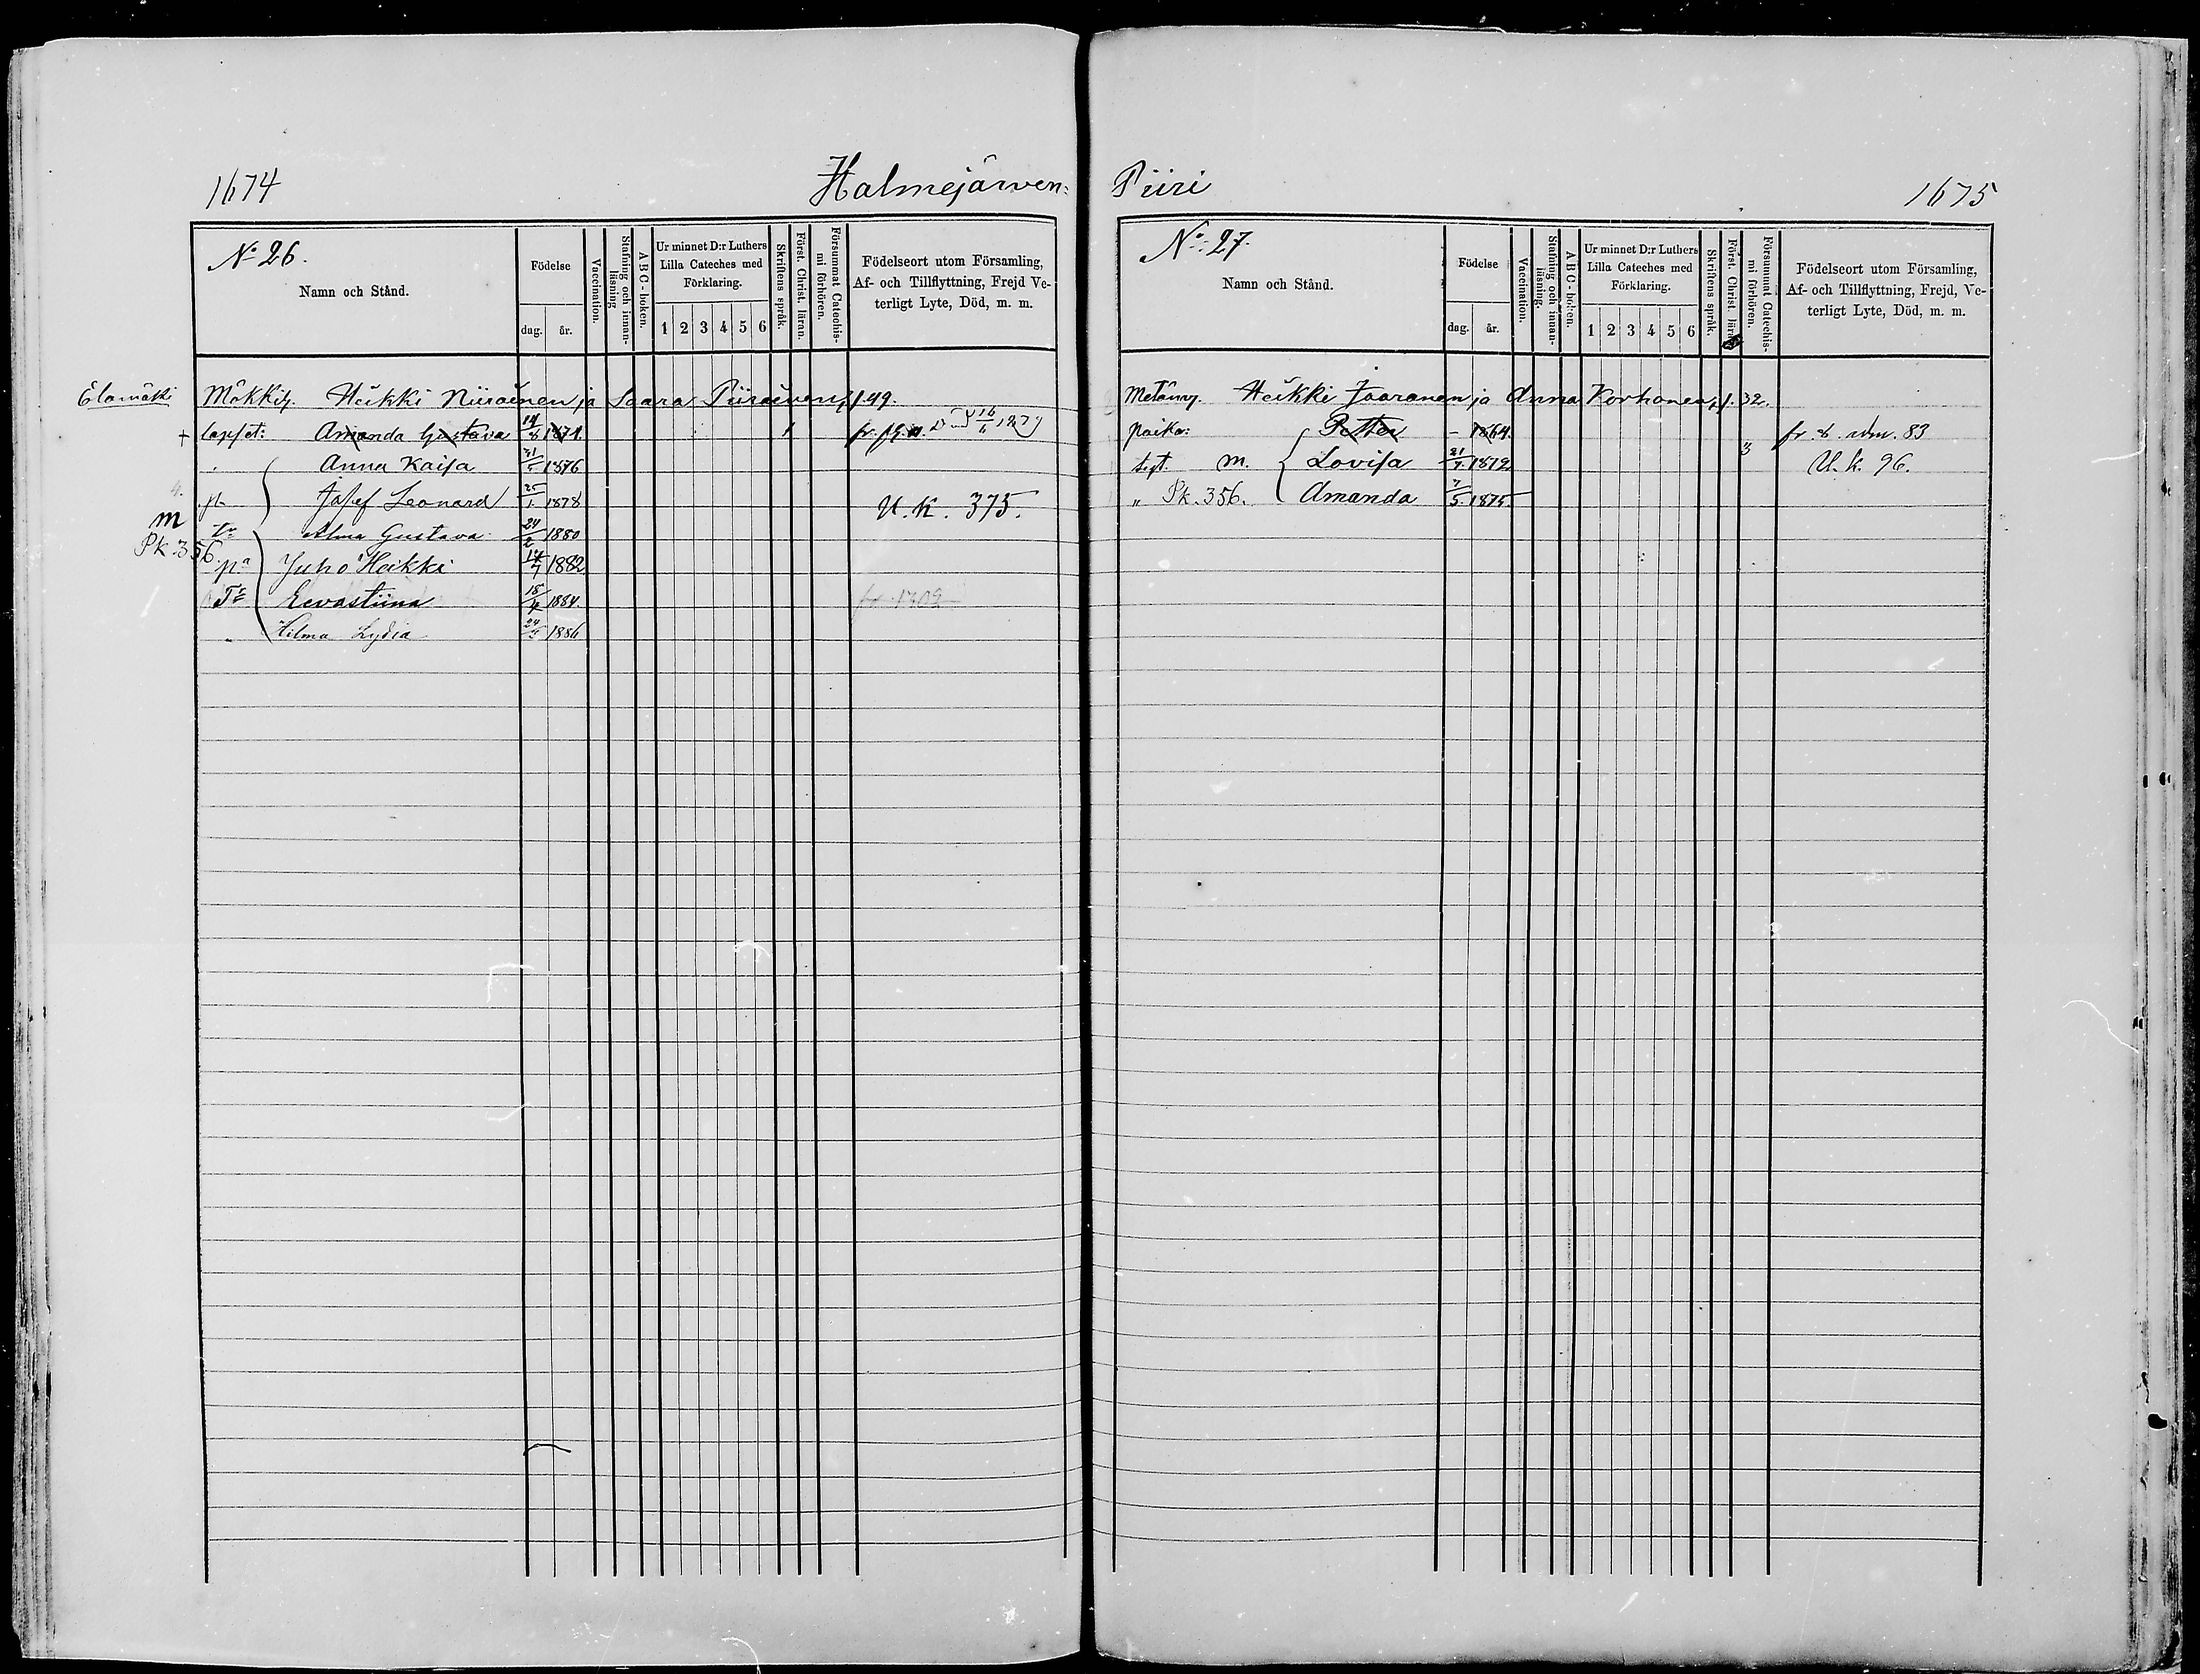 1674 Halmejärven: Piiri 1675
No 26.
Namn och Stånd.
Födelse
dag. år.
Vaccination.
Stafning och innan-läsning
ABC-boken.
Ur minnet D:r Luthers
Lilla Cateches med
Förklaring.
1 2 3 4 5 6
Skriftens språk.
Först. Christ. läran.
Försummat Catechis-mi förhören.
Födelseort utom Församling,
Af- och Tillflyttning, Frejd Ve-
terligt Lyte, Död, m. m.
Mökkil. Heikki Niiranen ja Saara 149.
+ lapset: Amanda Gustava 14/8 1871. 1
Anna Kaisa 31/5 1876
Josef Leonard 25/1 1878 U. K. 375.
m Alma Gustava 24/2 1880
Pk. 356. Juho Heikki 1882
Eevastiina 18/4 1884.
Hilma Lydia 1886
No: 27.
Namn och Stånd.
Födelse
dag. år.
Vaccination.
Stafning och innan-läsning.
ABC-boken.
Ur minnet D:r Luthers
Lilla Cateches med
Förklaring.
1 2 3 4 5 6
Skriftens språk.
Först. Christ. läran
Försummat Catechis-mi förhören.
Födelseort utom Församling,
Af- och Tillflyttning, Frejd, Ve-
terligt Lyte, Död, m. m.
Heikki Jaaranen ja Anna Korhonen, 32.
poika: Petter - 1864. 83
m. Lovisa 1872 3 U. k. 96.
" Pk. 356. Amanda 7/5 1875